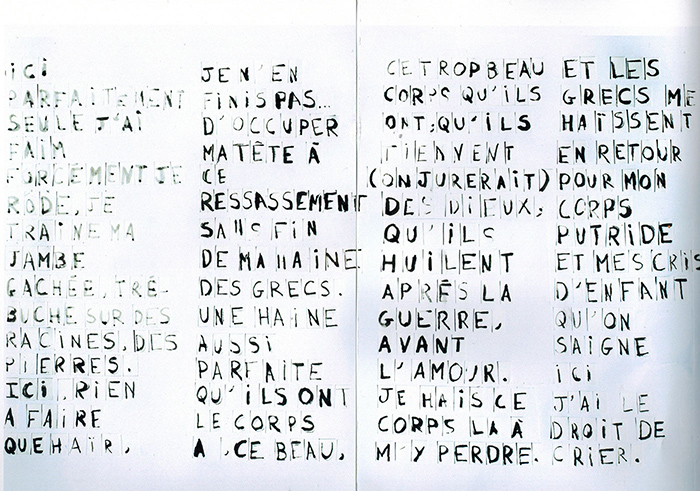 ICI
PARFAITEMENT
SEULE J'AI
FAIM
FORCÉMENT JE
RODE, JE
TRAINE MA
JAMBE
GACHÉE, TRÉ-
BUCHE SUR DES
RACINES, DES
PIERRES.
ICI, RIEN
A FAIRE
QUE HAÏR,
JE N'EN
FINIS PAS...
D'OCCUPER
MA TÊTE À
CE
RESSASSEMENT
SANS FIN
DE MA HAINE
DES GRECS.
UNE HAINE
AUSSI
PARFAITE
QU'ILS ONT
LE CORPS
A , CE BEAU,
CE TROP BEAU
CORPS QU'ILS
ONT, QU'ILS
TIENNENT
(ON JURERAIT)
DES DIEUX,
QU'ILS
HUILENT
APRÈS LA
GUERRE,
AVANT
L'AMOUR.
JE HAIS CE
CORPS LA À
M'Y PERDRE.
ET LES
GRECS ME
HAÏSSENT
EN RETOUR
POUR MON
CORPS
PUTRIDE
ET MES CRIS
D'ENFANT
QU'ON
SAIGNE
ICI
J'AI LE
DROIT DE
CRIER.